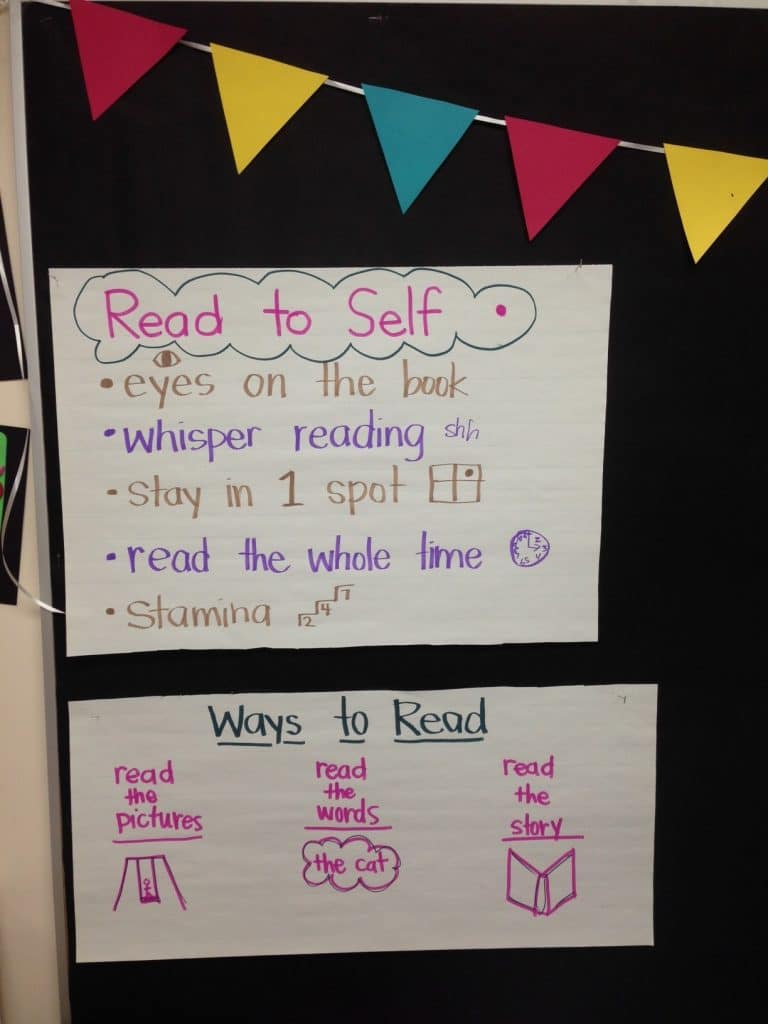 Read to Self
• eyes on the book
• whisper reading shh
• stay in 1 spot
• read the whole time
• Stamina 2 4 7
Ways to Read
read
the
pictures
read
the
words
the cat
read
the
story